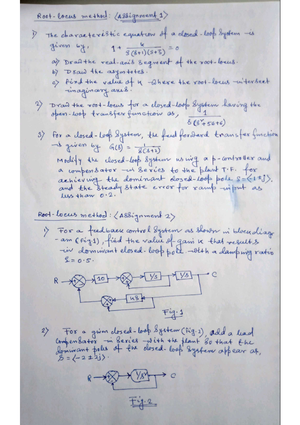 Root-locus method: (Assignment 1)
1) The characteristic equation of a closed-loop system is
given by. 1 + K / S(S+1)(S+5) = 0
a) Draw the real-axis segment of the root-locus.
b) Draw the asymtotes.
c) Find the value of K where the root-locus intersect
imaginary axis.
2) Draw the root-locus for a closed-loop system having the
open-loop transfer function as, 1 / S(S²+5S+6)
3) For a closed-loop system, the feed forward transfer function
is given by G(S) = 1 / S(S+2)
Modify the closed-loop system using a P-controller and
a compensator in series to the plant T.F. for
achieving the dominant closed-loop pole
and the steady state error for ramp input as
less than 0.2.
Root-locus method: (Assignment 2)
1) For a feedback control system as shown in block diagr
-am (Fig 1), find the value of gain K that results
in dominant closed-loop pole with a damping ratio
= 0.5.
R 10 1/S 1/S C
KS
Fig. 1
2) For a given closed-loop system (Fig. 2), add a lead
compensator in series with the plant so that the
dominant pole of the closed-loop system appear at,
S = (-2 ± 2j).
R 1/S² C
Fig. 2